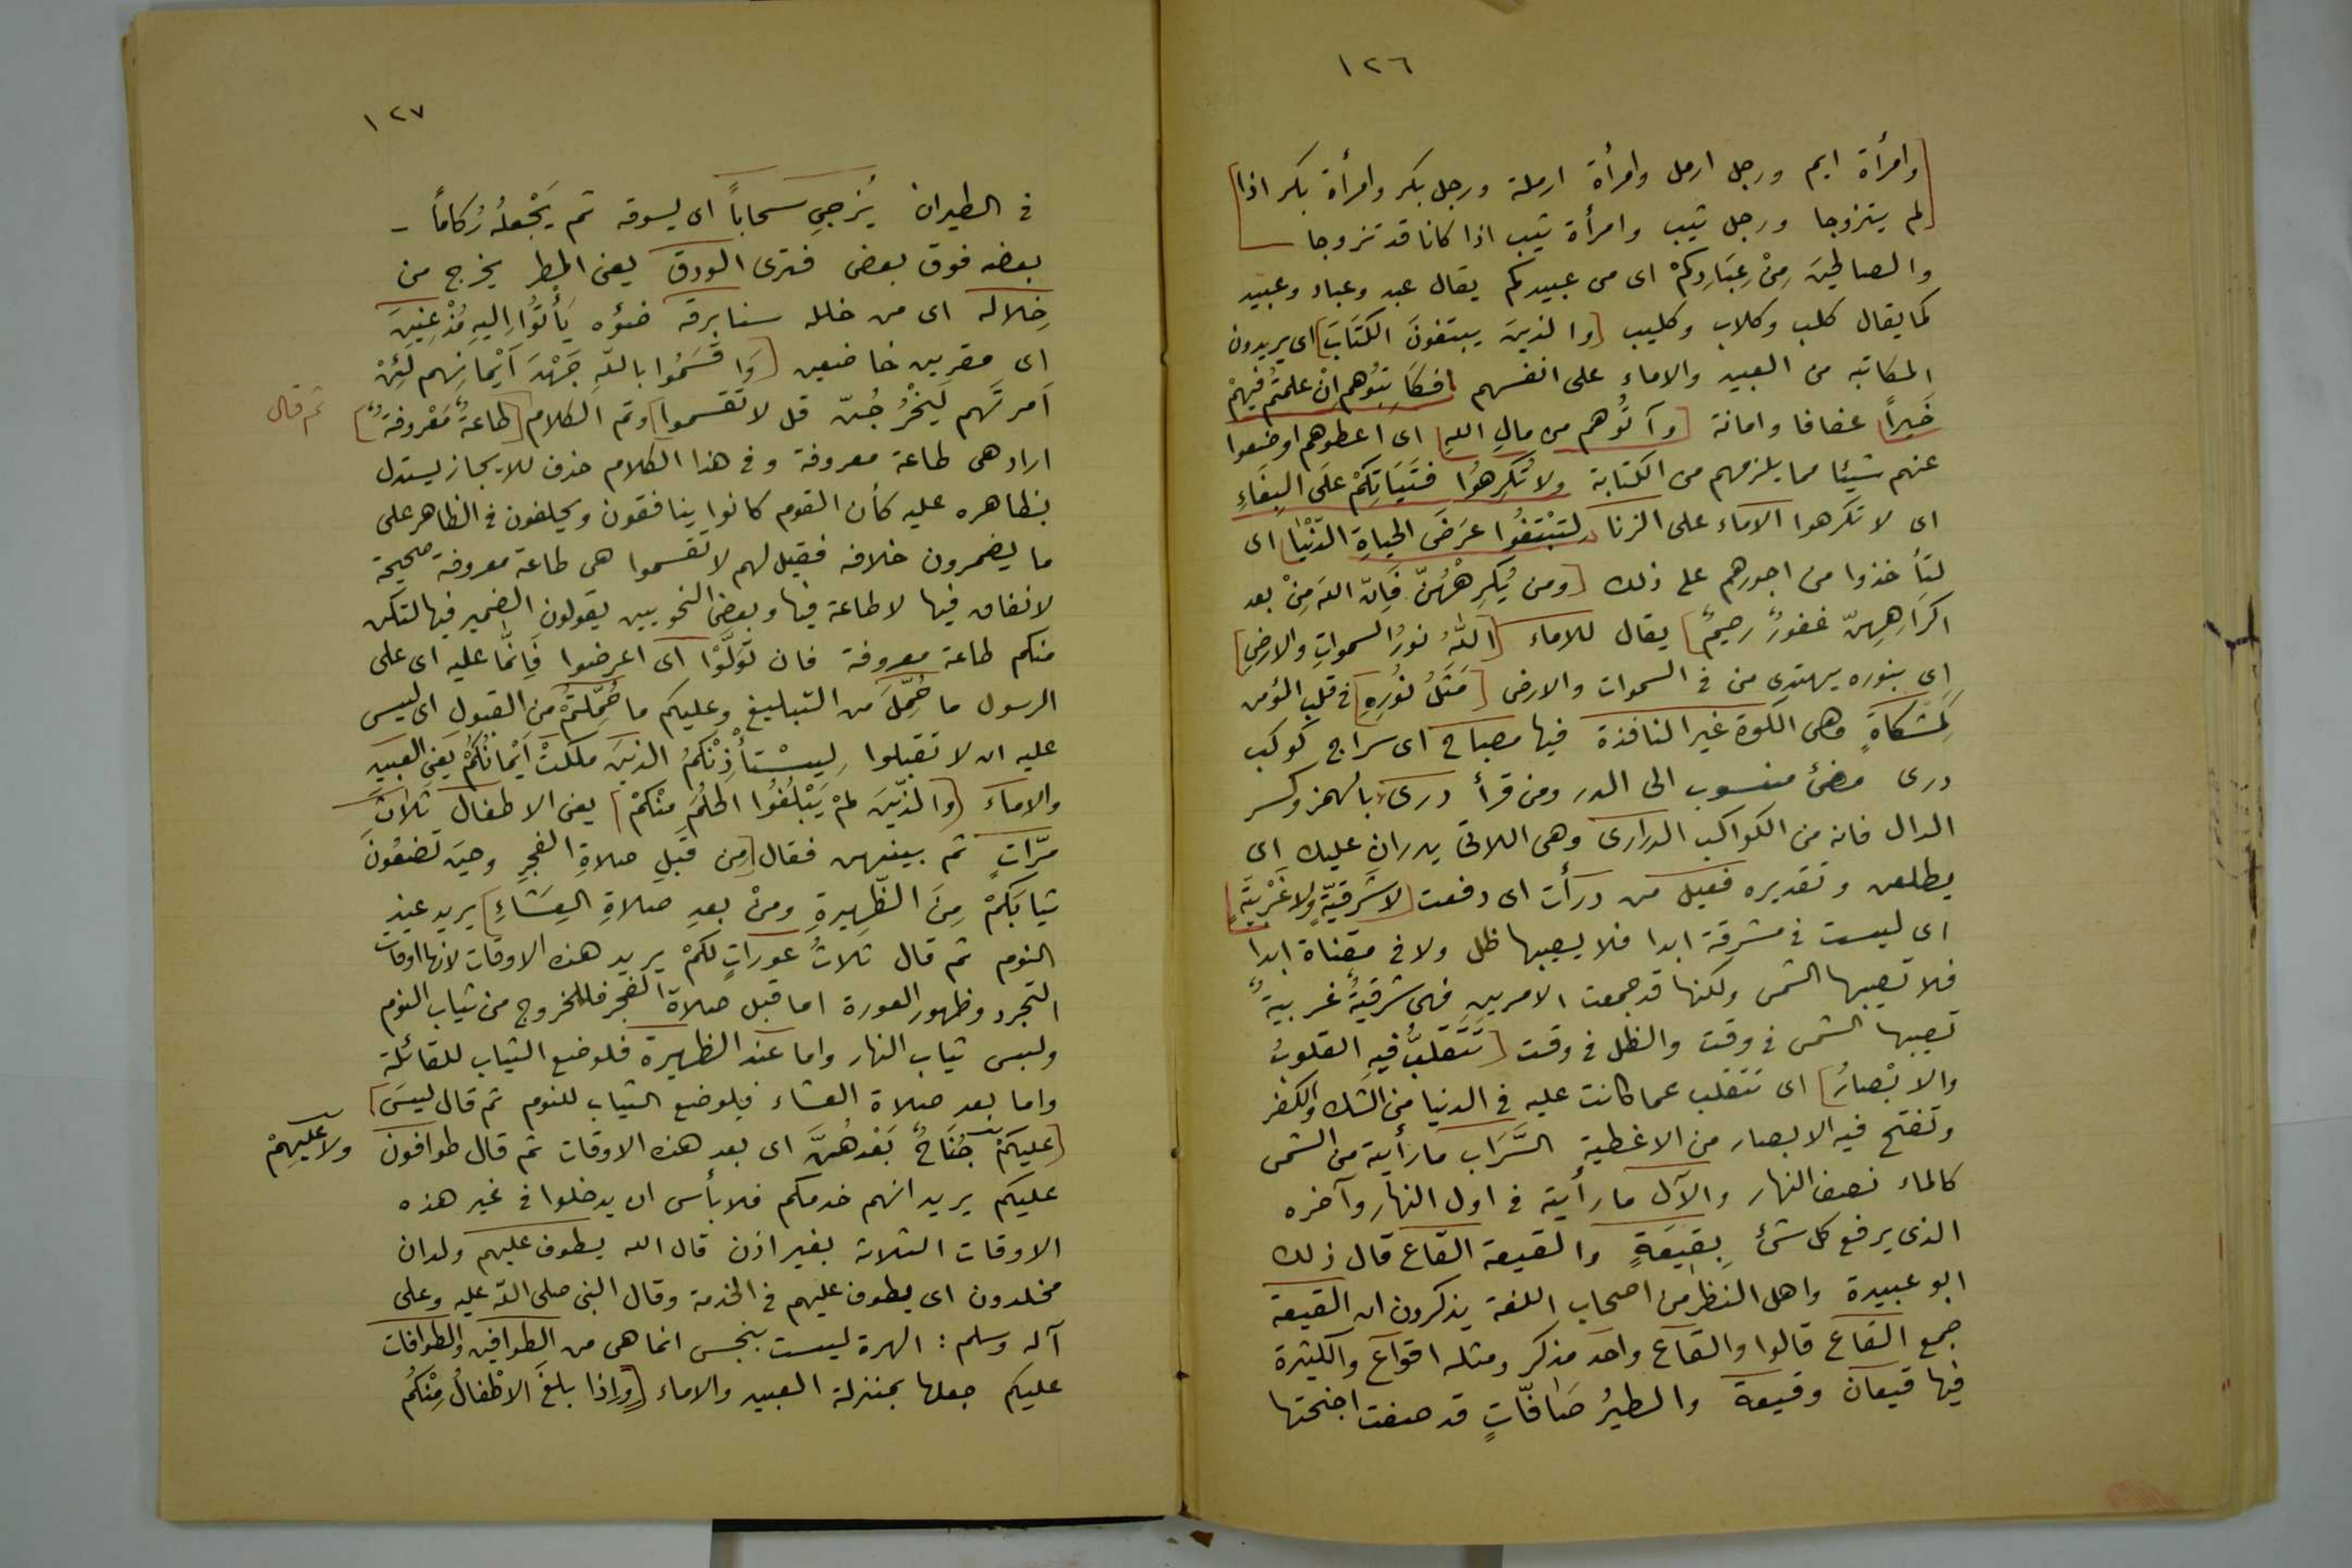 ١٢٦
[وامرأة ايم ورجل ارمل وامرأة ارملة ورجل بكر وامرأة بكر اذا]
[لم يتزوجا ورجل ثيب وامرأة ثيب اذا كانا قد تزوجا
والصالحين مِنْ عِبَادِكُمْ اى من عبيدكم يقال عبد وعباد وعبيد
كما يقال كلب وكلاب وكليب [والذينَ يبتغونَ الكتَابَ] اى يريدون
المكاتبه من العبيد والاماء على انفسهم [فكَاتِبُوهم اِنْ علمتُم فيهِمْ
خَيراً] عفافا وامانة [وآتُوهم من مالِ اللهِ] اى اعطوهم اوضعوا
عنهم شيئا مما يلزمهم من الكتابة ولا تُكرِهُوا فَتَيَاتِكُمْ عَلَى البِغَاءِ
اى لا تكرهوا الاماء على الزنا لِتَبْتَغُوا عَرَضَ الحَياةِ الدّنْيَا] اى
لتأخذوا من اجورهم على ذلك [ومن يُكرِهْهُنّ فَاِنّ اللهَ مِنْ بعد
اكرَاهِهِنّ غفورٌ رحيمٌ] يقال للاماء [اللهُ نورُ السمواتِ والارضِ]
اى بنوره يهتدى من فى السموات والارض [مَثَلُ نُورِهِ] فى قلب المؤمن
كَمِشكَاةٍ وهى الكوة غير النافذة فيها مصباح اى سراج كوكب
درى مضئ منسوب الى الدر ومن قرأ درىء بالهمز وكسر
الدال فانه من الكواكب الدرارى وهى اللاتى يدرانِ عليك اى
يطلعن وتقديره فعيل من درأت اى دفعت [لا شَرقيّةٍ ولا غَرْبيّةٍ]
اى ليست فى مشرقة ابدا فلا يصيبها ظل ولا فى مقناة ابدا
فلا تصيبها الشمس ولكنها قد جمعت الامرين فهى شرقيةٌ غربيةٌ
تصيبها الشمس فى وقت والظل فى وقت [تَتَقَلبُ فيهِ القلوبُ
والابْصارُ] اى تتقلب عما كانت عليه فى الدنيا من الشك والكفر
وتفتح فيه الابصار من الاغطية السَّرَاب ما رأيته من الشمس
كالماء نصف النهار والآل ما رأيته فى اول النهار وآخره
الذى يرفع كل شئ بِقِيعَةٍ والقيعة القاع قال ذلك
ابو عبيدة واهل النظر من اصحاب اللغة يذكرون ان القيعة
جمع القاع قالوا والقاع واحد مذكر ومثله اقواع والكثيرة
فيها قيعان وقيعة والطيرُ صَافّاتٍ قد صفت اجنحتها
١٢٧
فى الطيران يُزجِى سحاباً اى يسوقه ثم يَجْعَلُه رُكَاماً -
بعضه فوق بعض فترى الودق يعنى المطر يخرج من
خِلاله اى من خلله سنا برقه ضوؤه يَأتُوا اِليهِ مُذْعِنِينَ
اى مقرين خاضعين [وَاَقسَمُوا باللهِ جَهْدَ اَيْمَانِهم لَئِنْ
اَمرتَهم لَيَخْرُجُنّ قل لا تقسموا] وتم الكلام [طاعةٌ مَعْروفةٌ] ثم قال
اراد هى طاعة معروفة وفى هذا الكلام حذف للايجاز يستدل
بظاهره عليه كأن القوم كانوا ينافقون ويحلفون فى الظاهر على
ما يضمرون خلافه فقيل لهم لا تقسموا هى طاعة معروفة صحيحة
لا نفاق فيها لا طاعة فيها وبعض النحويين يقولون الضمير فيها لتكن
منكم طاعة معروفة فان تَوَلَّوْا اى اعرضوا فَاِنَّمَا عليه اى على
الرسول ما حُمِّلَ من التبليغ وعليكم ما حُمِّلتُمْ من القبول اى ليس
عليه ان لا تقبلوا لِيَسْتَأذِنْكُمُ الذينَ ملكتْ اَيْمانُكُمْ يعنى العبيد
والاماء [والذّينَ لَمْ يَبْلُغُوا الحُلُمَ مِنْكُمْ] يعنى الاطفال ثلاثَ
مرّاتٍ ثم بينهن فقال [مِن قبلِ صلاةِ الفجرِ وحينَ تضعُونَ
ثيابَكُمْ مِنَ الظّهِيرةِ ومنْ بعدِ صلاةِ العِشَاءِ] يريد عند
النوم ثم قال ثلاثُ عوراتٍ لكُمْ يريد هذه الاوقات لانها اوقات
التجرد وظهور العورة اما قبل صلاة الفجر فللخروج من ثياب النوم
ولبس ثياب النهار واما عند الظهيرة فلوضع الثياب للقائلة
واما بعد صلاة العشاء فلوضع الثياب للنوم ثم قال ليسَ]
[عليكُمْ جُنَاحٌ بَعْدهُنَّ اى بعد هذه الاوقات ثم قال طوافون ولا عليهِمْ
عليكم يريد انهم خدمكم فلا بأس ان يدخلوا فى غير هذه
الاوقات الثلاثة بغير اذن قال الله يطوف عليهم ولدان
مخلدون اى يطوف عليهم فى الخدمة وقال النبى صلى الله عليه وعلى
آله وسلم: الهرة ليست بنجس انما هى من الطوافين والطوافات
عليكم جعلها بمنزلة العبيد والاماء [وإذا بلغَ الاطْفالُ مِنْكُم